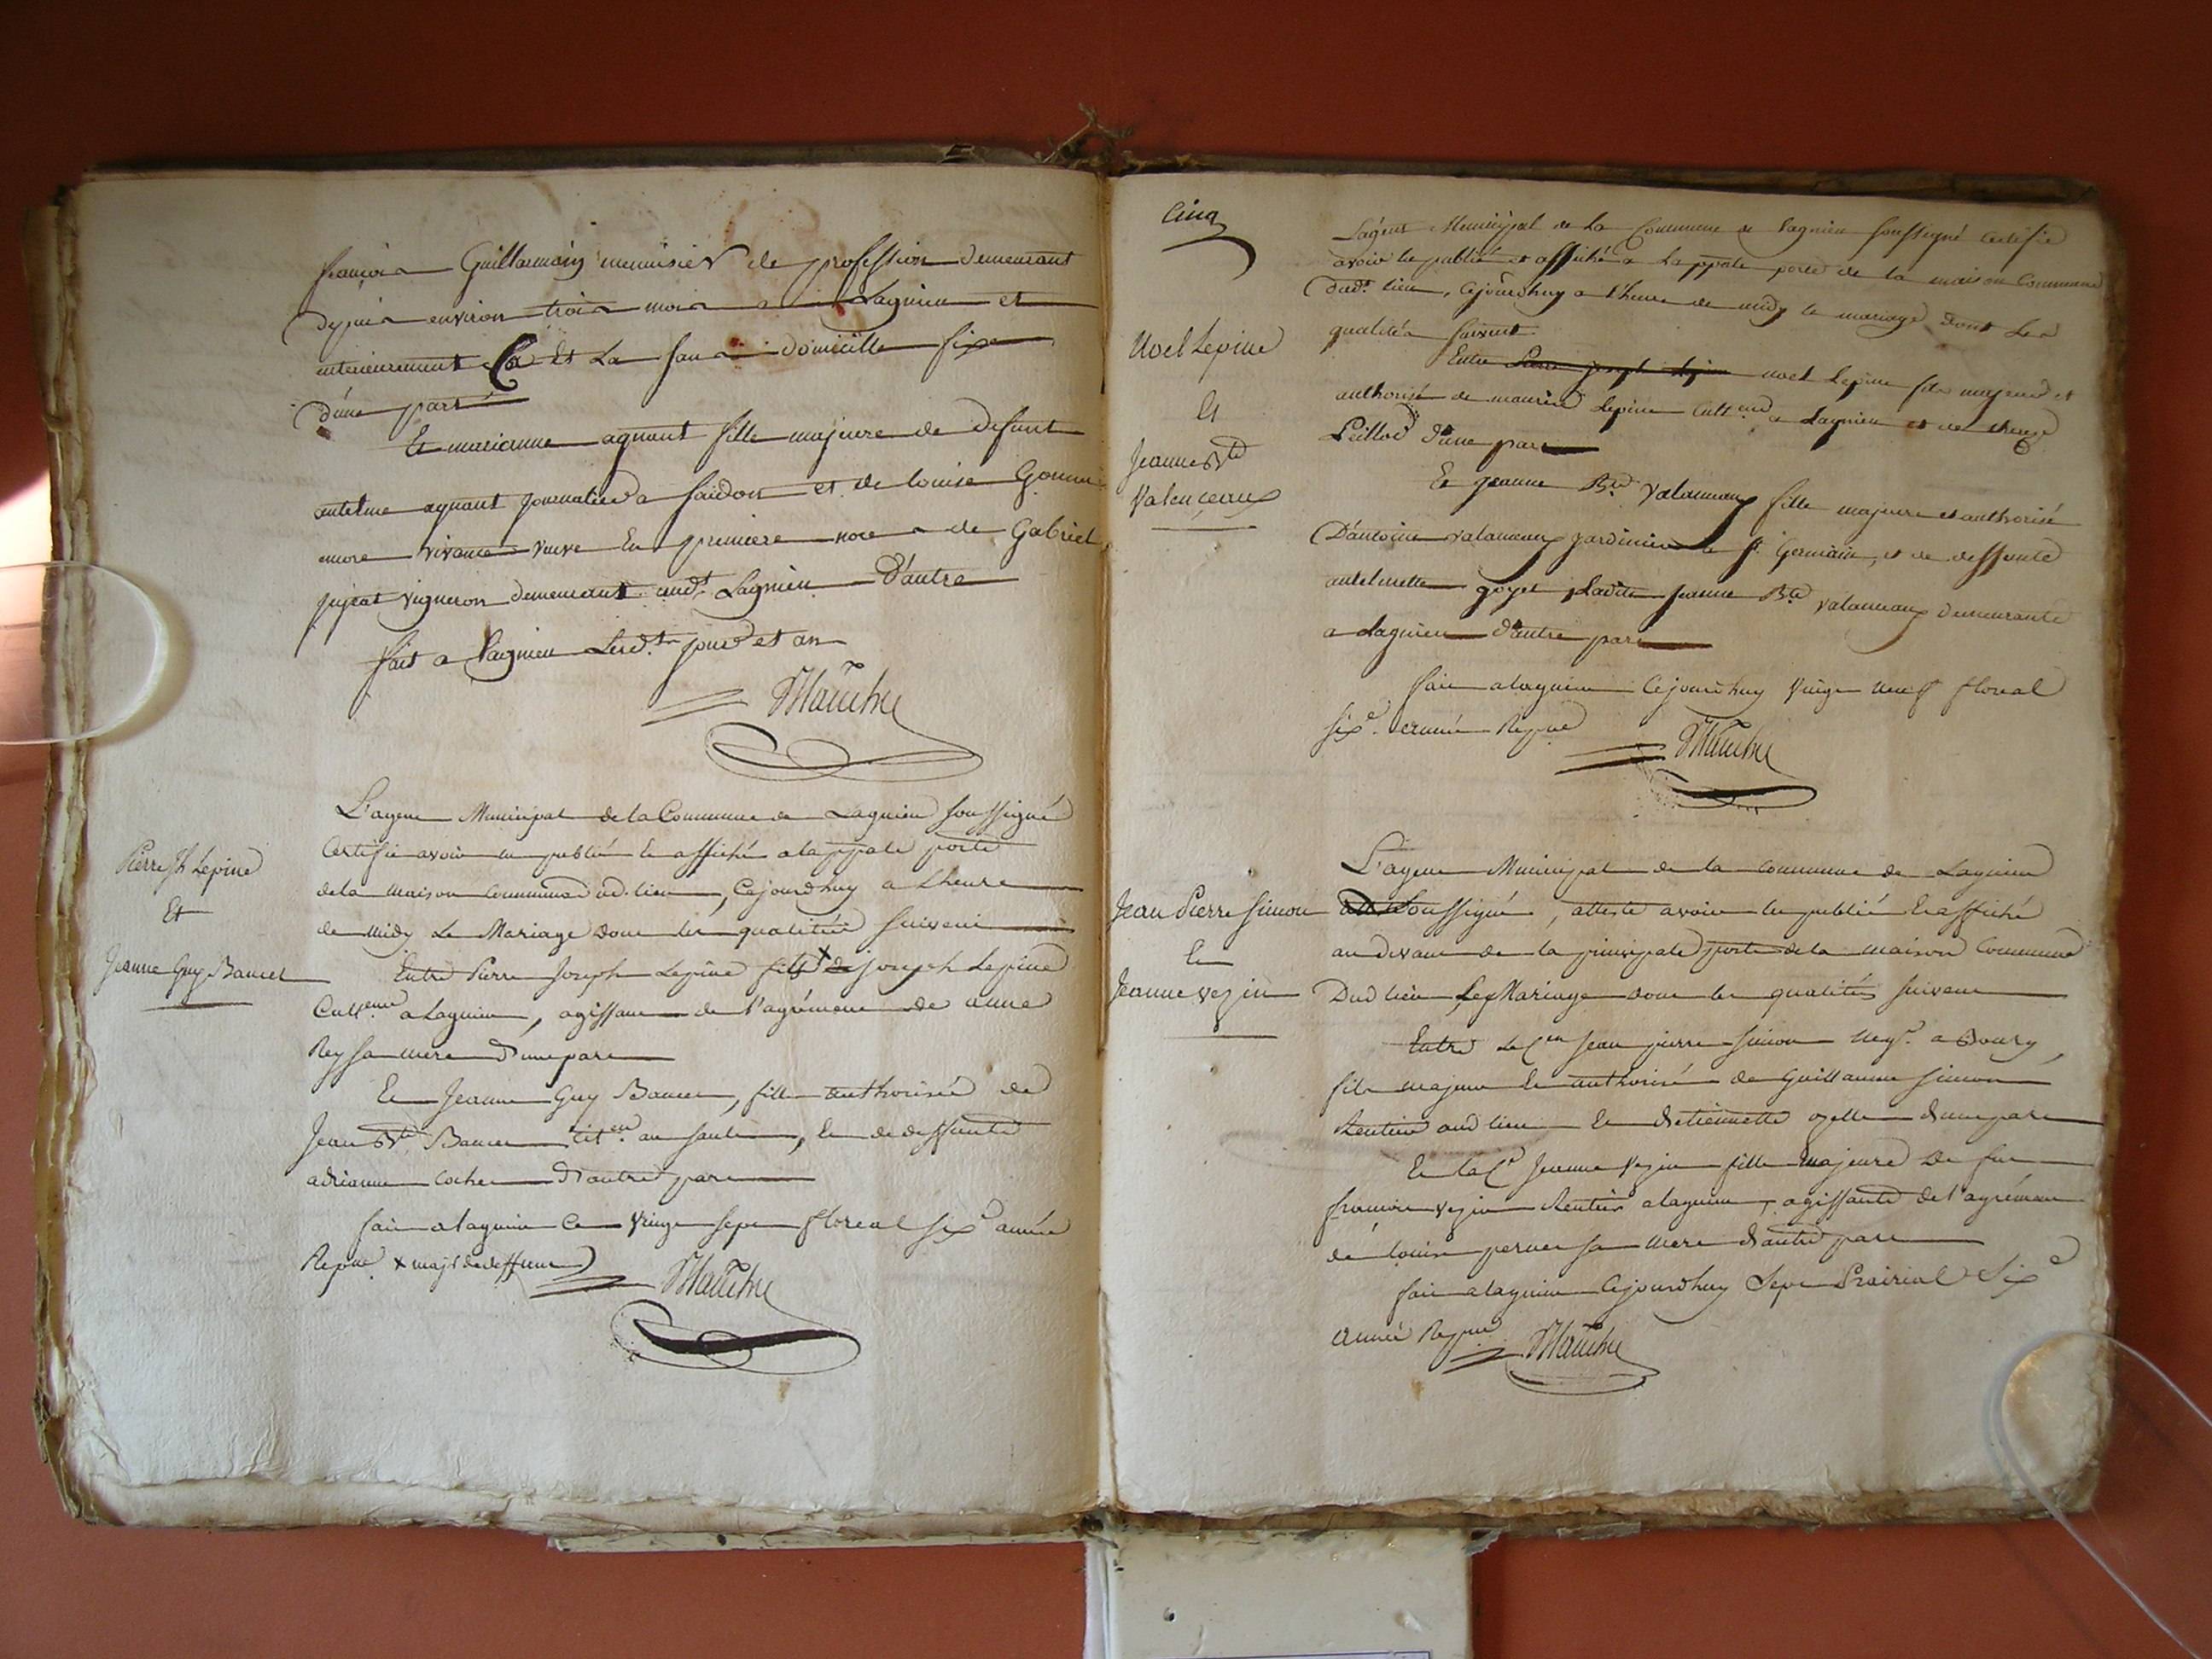 françois Guillaumain menuisier de profession demeurant
depuis environ trois mois a Lagnieu et
anterieurement Ca et La sans domicille fixe
d'une part
Et marianne agnant fille majeure de defunt
antelme agnant journalier a saidon et de louise
encore vivante veuve En premiere noce de Gabriel
vigneron demeurant aud.t Lagnieu D'autre
fait a Lagnieu Lesd.ts jour et an
L'agent Municipal de la Commune de Lagnieu soussigné
Certifie avoir lu publié et affiché a la ppale porte
de la maison commune dud. lieu, Cejourdhuy a L'heure
de midy Le Mariage dont les qualités suivent
Pierre Jh Lépine
Et
Jeanne Guy Bancet
Entre Pierre Joseph Lepine fils + de joseph Lepine
Cult.eur a Lagnieu, agissant de l'agrément de anne
Rey sa mere d'une part
Et Jeanne Guy Bancet, fille authorisée de
Jean B.te Bancet au sault, et de deffunte
adrianne cochet d'autre part
fait a lagnieu ce vingt sept floreal six.e année
Rep.ne + maj.r de deffunt
Cinq
L'agent Municipal de La Commune de Lagnieu soussigné certifie
avoir lu publié et affiché a La ppale porte de la maison Commune
dud.t lieu, Cejourdhuy a l'heure de midy le mariage dont Les
qualités suivent.
Noel Lepine
Et
Jeanne B.te
Valenceaux
Entre noel Lepine fils majeur et
authorisé de maurice Lepine Cult.eur a Lagnieu et de
Peilloд d'une part
Et jeanne B.te valanceaux fille majeure et authorisé
D'antoine valanceaux jardinier a S.t Germain, et de deffunte
antelmette goyet, Ladite Jeanne B.te valanceaux demeurante
a Lagnieu d'autre part
fait a lagnieu Cejourdhuy vingt neuf floreal
six.e année Rep.ne
Jean Pierre Simon
Et
Jeanne Vezin
L'agent Municipal de la commune de Lagnieu
soussigné, atteste avoir lu publié et affiché
au devant de la principale porte de la maison Commune
Dud lieu Le Mariage dont les qualités suivent
Entre Le C.en Jean pierre Simon neg.t a Bourg,
fils majeur et authorisé de Guillaume Simon
Rentier aud lieu et d'etiennette ozelle d'une part
Et la C.e Jeanne Vezin fille Majeure De feu
francois Vezin Rentier a lagnieu, agissante de l'agrément
de louise pernet sa mere d'autre part
fait a lagnieu Cejourdhuy Sept Prairial Six.e
année Rep.ne